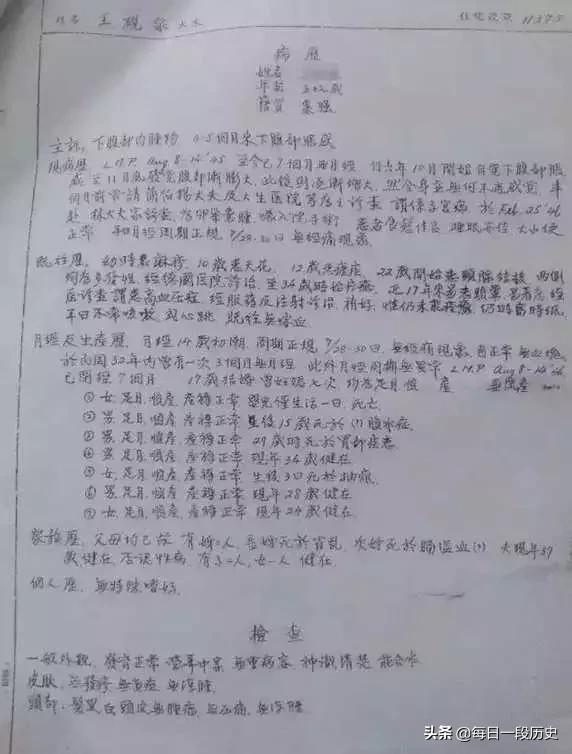 姓名 王硯泉大夫 住院號數 11375
病歷
姓名
年龄 五十二歲
籍貫 棗强
主訴, 下腹部内腫物 4-5個月來下腹部脹感
現病歷 L.M.P. Aug. 8-14' 45 至今已7個月無月經 但去年10月開始自覺下腹部脹
感 至11月底發覺腹部漸膨大, 此後則逐漸增大, 然全身並無何不適感覺 半
個月前曾請
赴 林大夫處診查, 為卵巢囊腫, 囑入院手術 患者食慾佳良 睡眠安佳 大小便
正常 月經周期正規 7/28-30日 無經痛現象
既往歷, 幼時患麻疹, 10歲患天花, 12歲患瘧疾, 22歲開始患頸腺結核 兩側
頸部多發性, 醫院診治, 至34歲時始痊癒 17年來
診查謂患高血壓症 經服藥及注射診治, 稍好,
平日不常咳嗽 或心跳
月經及生產歷, 月經14歲初潮, 周期正規 7/28-30日, 無經痛現象, 量正常 無血塊
於民國32年内曾有一次3個月無月經 此外月經周期無異常 L.M.P. Aug 8-14'
已閉經7個月 17歲結婚曾妊娠七次, 均為足月順產
① 女, 足月, 順產, 產褥正常 嬰兒僅生活一日, 死亡
② 男, 足月, 順產, 產褥正常 生後15歲死於(?)腹水症,
③ 男, 足月, 順產, 產褥正常 29歲時死於胃部疾患
④ 男, 足月, 順產, 產褥正常 現年34歲健在
⑤ 女, 足月, 順產, 產褥正常 生後3日死於抽瘋,
⑥ 男, 足月, 順產, 產褥正常 現年28歲健在
⑦ 女, 足月, 順產, 產褥正常 現年24歲健在
家族歷, 父母均已故 有姊二人, 長姊死於霍亂, 次姊死於腦溢血(?) 夫現年57
歲健在, 否認性病 有子二人, 女一人 健在,
個人歷, 無特殊嗜好,
檢查
一般外觀, 發育正常 營養中等 無重病容, 神識清楚 能合作
皮膚, 無發疹 無黃疸 無浮腫
頭部, 髮黑白 頭皮無腫瘍, 無壓痛, 無浮腫
头条 @每日一段历史